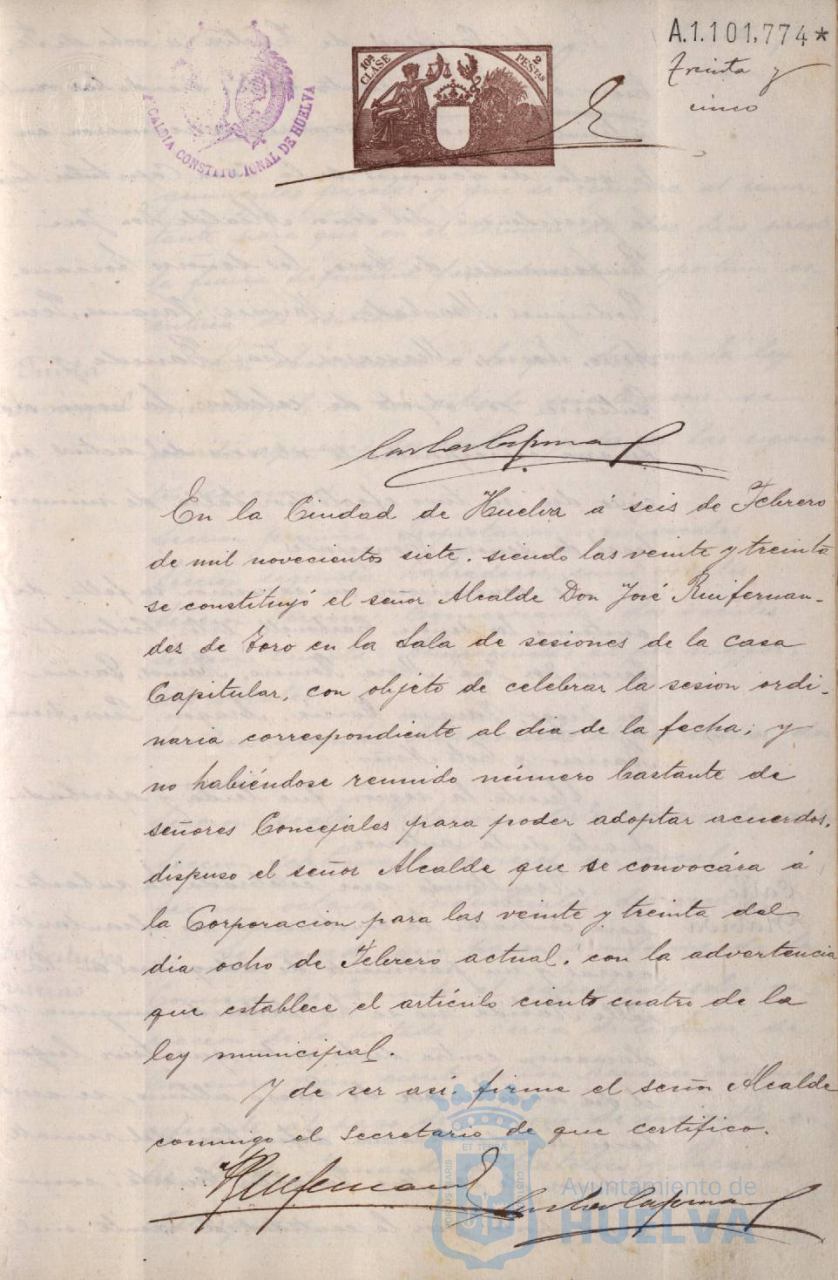 A.1.101,774*
treinta y
cinco
10ª CLASE
2 PESETAS
ALCALDIA CONSTITUCIONAL DE HUELVA
En la Ciudad de Huelva á seis de Febrero
de mil novecientos siete. siendo las veinte y treinta
se constituyó el señor Alcalde Don José Ruifernan-
des de Toro en la Sala de sesiones de la casa
Capitular, con objeto de celebrar la sesion ordi-
naria correspondiente al dia de la fecha; y
no habiéndose reunido número bastante de
señores Concejales para poder adoptar acuerdos,
dispuso el señor Alcalde que se convocára á
la Corporacion para las veinte y treinta del
dia ocho de Febrero actual, con la advertencia
que establece el artículo ciento cuatro de la
ley municipal.
Y de ser así firme el señor Alcalde
conmigo el Secretario de que certifico.
Ayuntamiento de
HUELVA